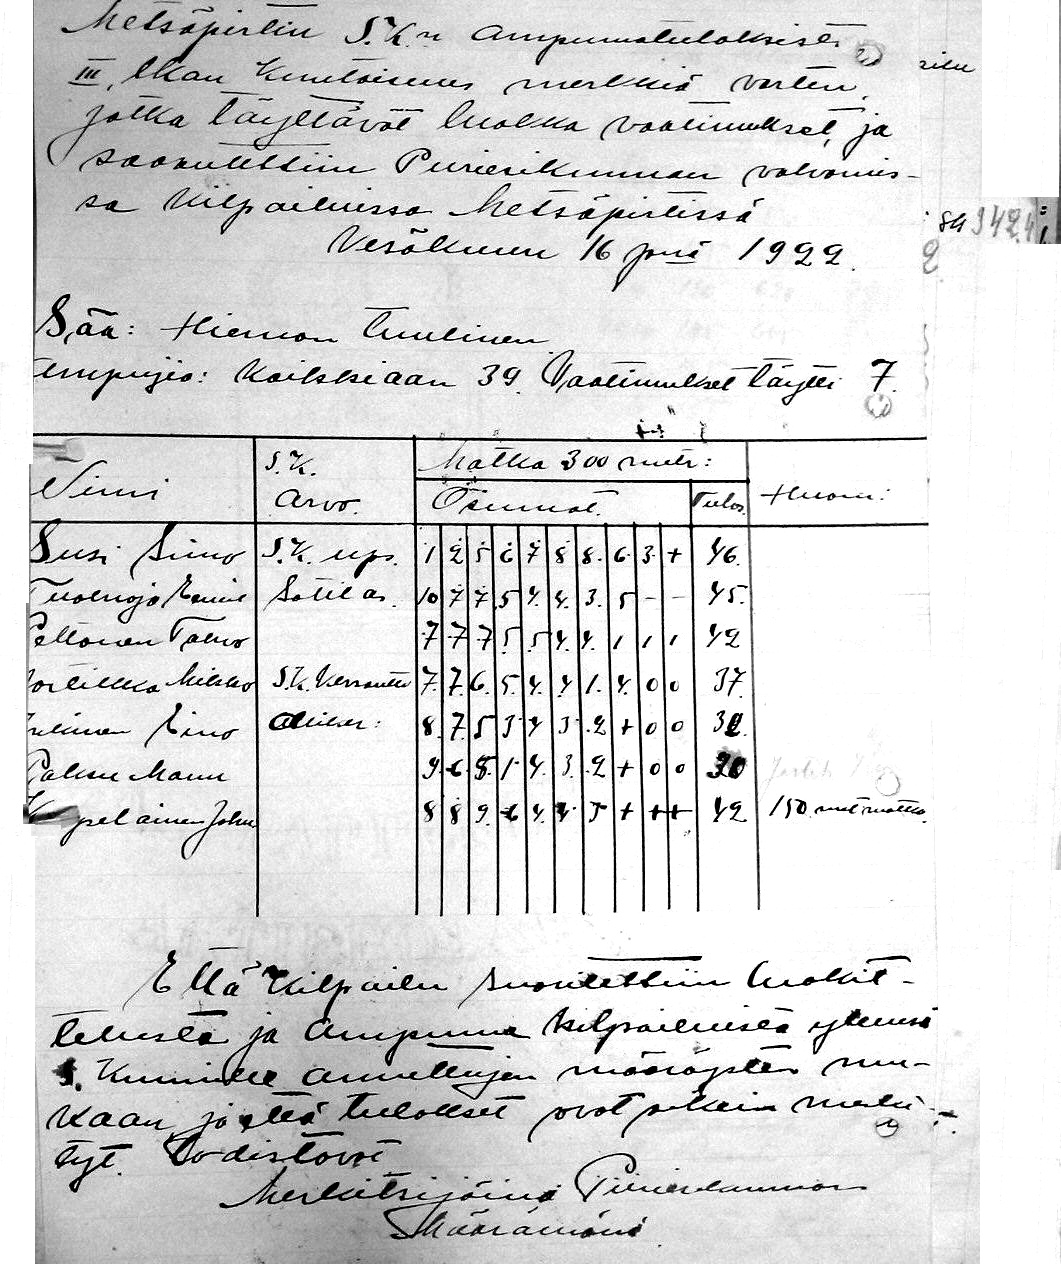 Metsäpirtin S.K:n ampumatuloksista
III lkan kuntoisuus merkkiä varten,
jotka täyttävät luokka vaatimukset, ja
saavutettiin Piiriesikunnan valvomis-
sa kilpailuissa Metsäpirtissä
Kesäkuun 16 pnä 1922.
Sää: Hieman tuulinen
Ampujia: Kaikkiaan 39. Vaatimukset täytti 7.
Nimi S.K. arvo. Matka 300 metr: Osumat. Tulos. Huom:
Susi Simo S.K. ups. 1 2 5 6 7 8 8 6 3 + 46.
Eemil Sotilas. 10 7 7 5 4. 4. 3. 5 - - 45.
Peltonen Toivo 7 7 7 5 5 4. 4. 1 1 1 42
Mikko S.K. 7. 7. 6. 5. 4. 4 1. 4. 0 0 37
Eino 8. 7. 5 3 4 3 2 + 0 0 32.
Paksu Manu 9. 6 5. 1 4. 3. 2 + 0 0 30
Juho 8 8 9. 6 4. 4 3 + + + 42 150 met matka.
Että kilpailu suoritettiin luokit-
telusta ja ampuma kilpailuista yleensä
S. Kunnille annettujen määräysten mu-
kaan ja että tulokset ovat oikein merki-
tyt. Todistavat
Merkitsijöinä Piiriesikunnan
Määrääminä